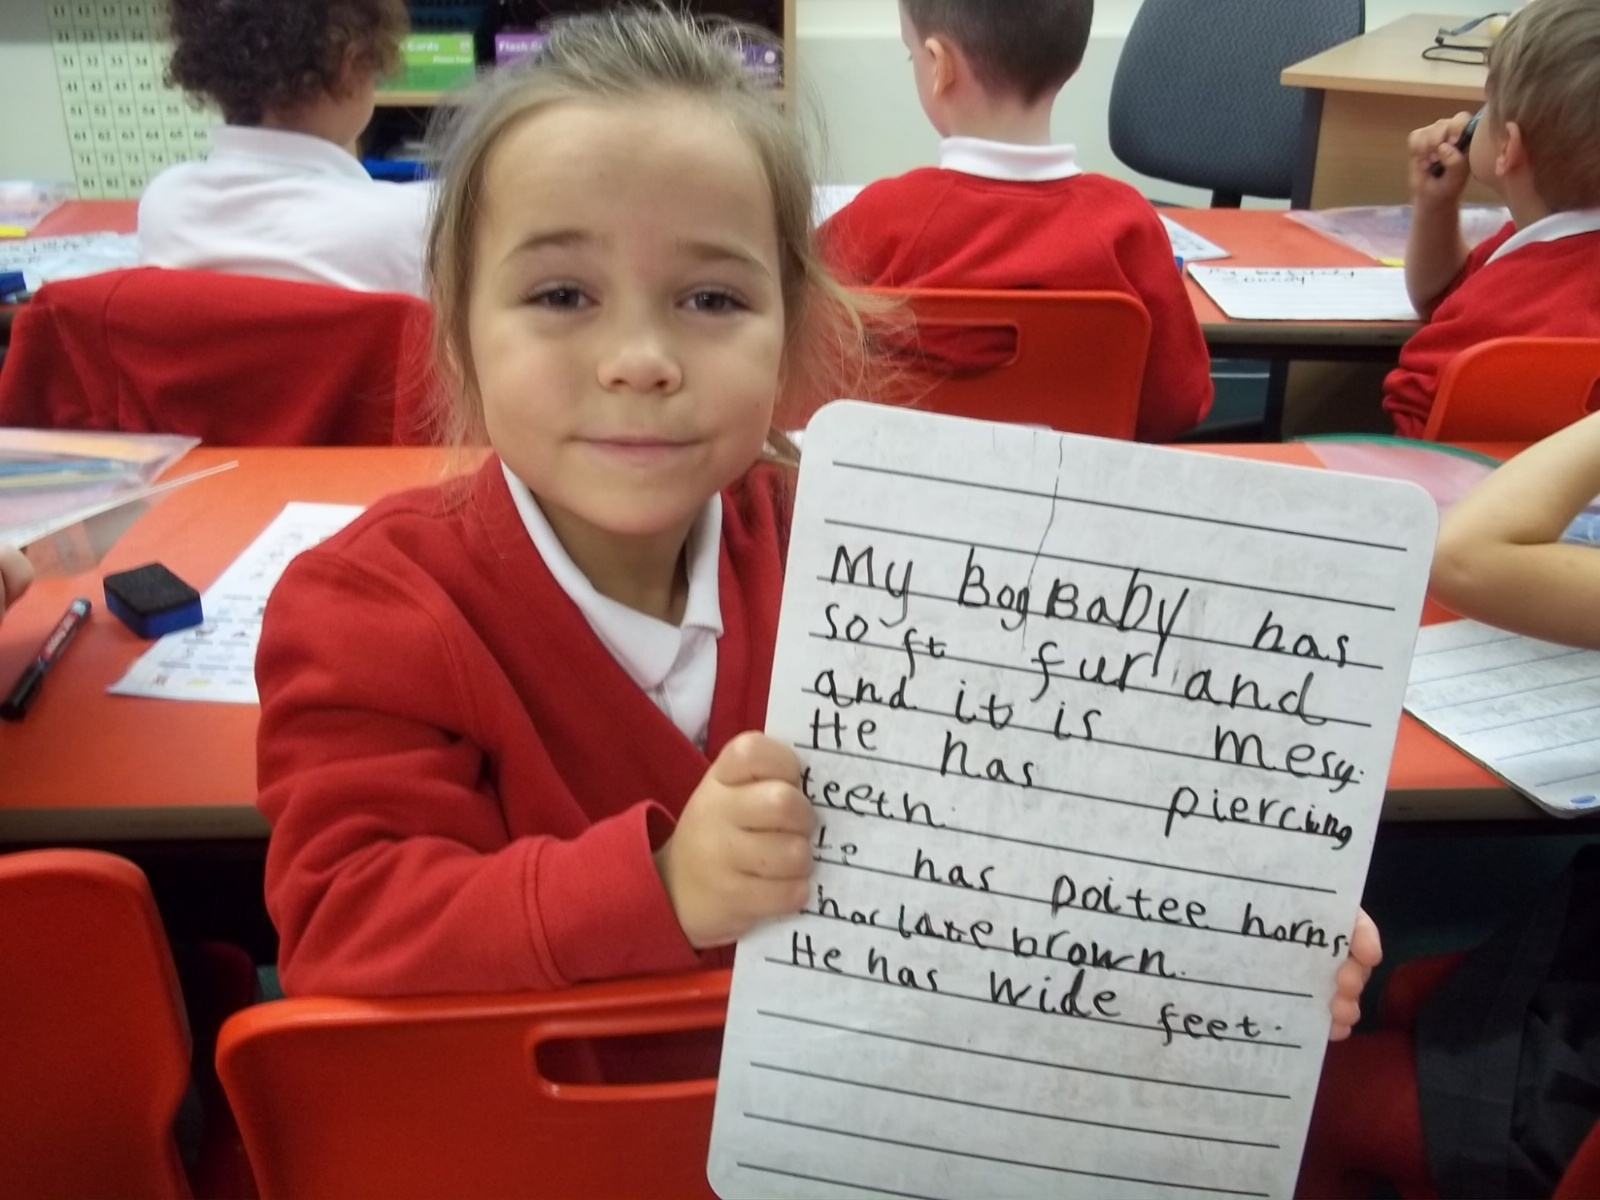 My Bog Baby has
soft fur and
and it is mesy.
He has piercing
teeth.
He has poitee horns.
brown.
He has wide feet.